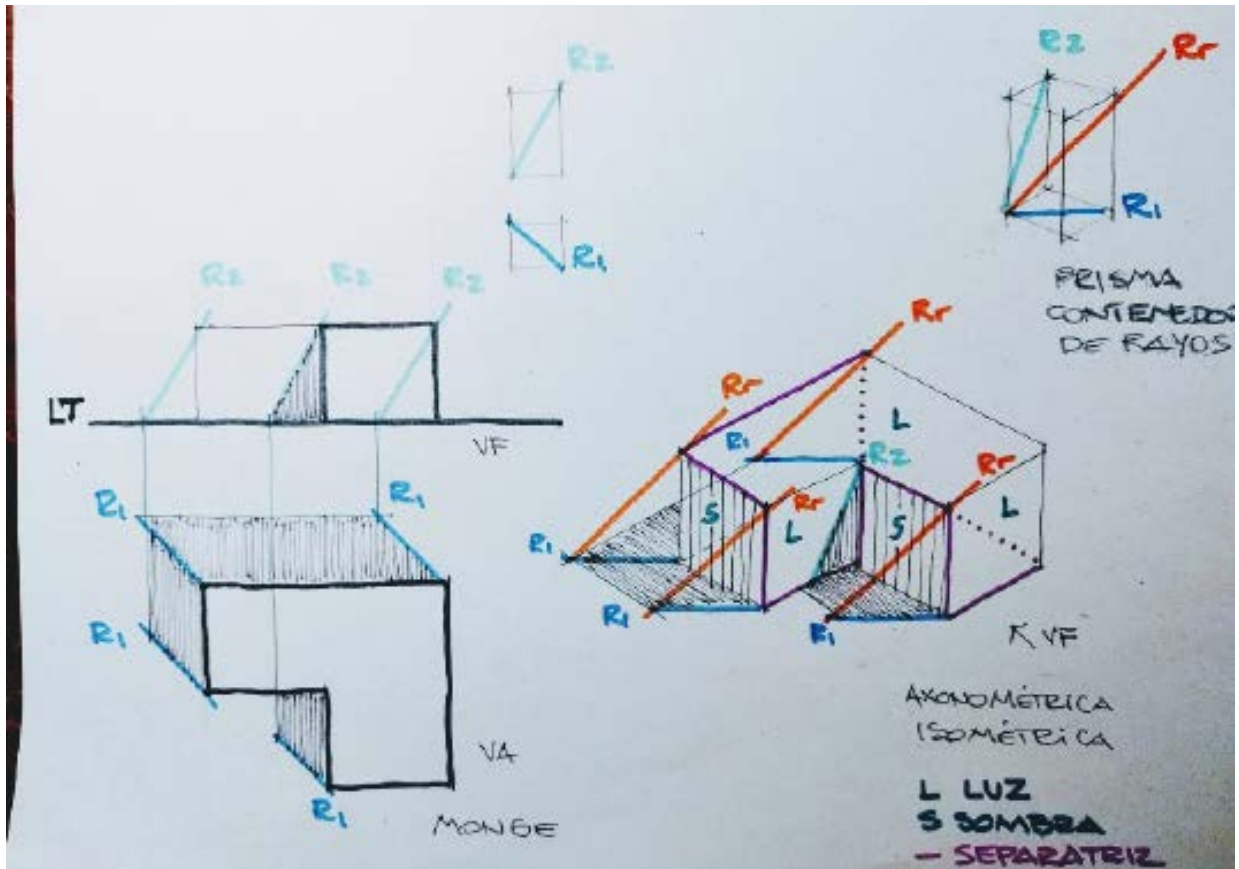 R2
R1
R2
Rr
R1
PRISMA
CONTENEDOR
DE RAYOS
R2
R2
R2
LT
VF
R1
R1
R1
VA
R1
MONGE
Rr
Rr
R1
L
R2
Rr
S
L
Rr
S
L
R1
R1
R1
VF
AXONOMÉTRICA
ISOMÉTRICA
L LUZ
S SOMBRA
— SEPARATRIZ